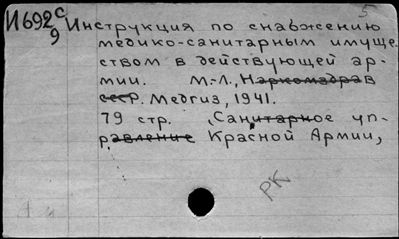 5
И692 с Инструкция по снабжению
9
медико-санитарным имуще-
ством в действующей ар-
мии. М.-Л., Наркомздрав
СССР. Медгиз, 1941.
79 стр. (Санитарное уп-
равление Красной Армии,
РК